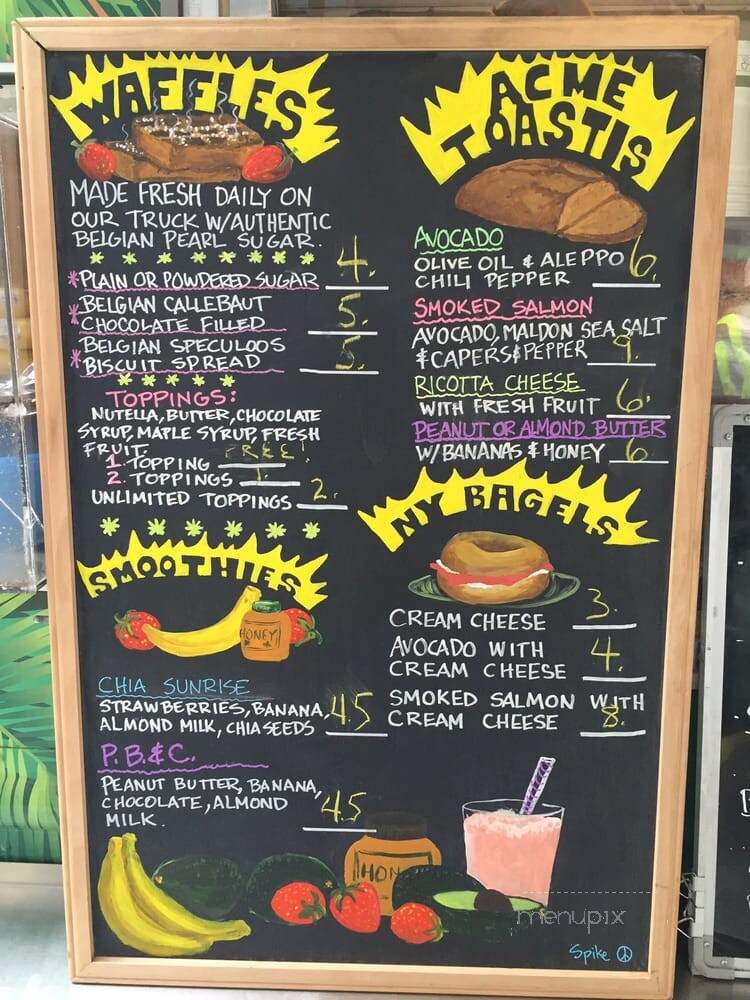 WAFFLES
MADE FRESH DAILY ON
OUR TRUCK W/AUTHENTIC
BELGIAN PEARL SUGAR.
* PLAIN OR POWDERED SUGAR 4.
* BELGIAN CALLEBAUT
CHOCOLATE FILLED 5.
* BELGIAN SPECULOOS
BISCUIT SPREAD 5.
TOPPINGS:
NUTELLA, BUTTER, CHOCOLATE
SYRUP, MAPLE SYRUP, FRESH
FRUIT.
1. TOPPING FREE!
2. TOPPINGS 1.
UNLIMITED TOPPINGS 2.
SMOOTHIES
HONEY
CHIA SUNRISE
STRAWBERRIES, BANANA,
ALMOND MILK, CHIA SEEDS 4.5
P.B.&C.
PEANUT BUTTER, BANANA,
CHOCOLATE, ALMOND
MILK. 4.5
ACME
TOASTIS
AVOCADO
OLIVE OIL & ALEPPO
CHILI PEPPER 6.
SMOKED SALMON
AVOCADO, MALDON SEA SALT
& CAPERS & PEPPER 9.
RICOTTA CHEESE
WITH FRESH FRUIT 6.
PEANUT OR ALMOND BUTTER
W/BANANAS & HONEY 6
NY BAGELS
CREAM CHEESE 3.
AVOCADO WITH
CREAM CHEESE 4.
SMOKED SALMON WITH
CREAM CHEESE 8.
HON
menupix
Spike